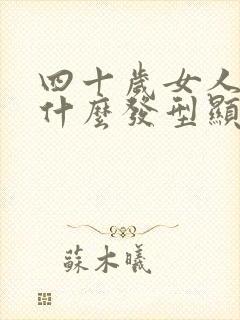 四十歲女人
什麼發型顯
蘇木曦